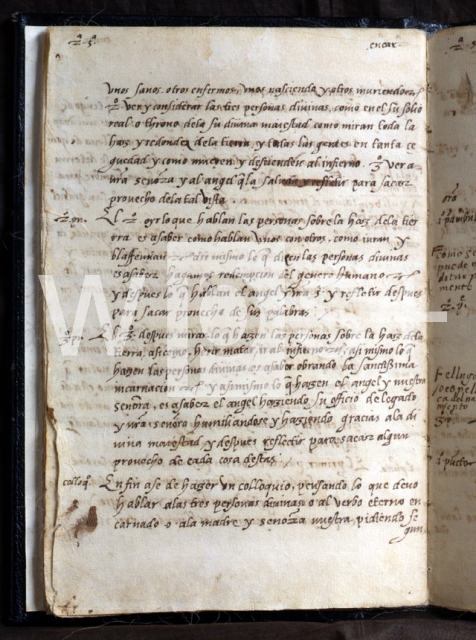 2ª. 5ª. encar
unos sanos, otros enfermos, unos nasciendo y otros muriendo &c.
2º. ver y considerar las tres personas divinas, como en el su solio
real o throno de la su divina maiestad como miran toda la
haz y redondez de la tierra, y todas las gentes en tanta ce
guedad y como mueren y descienden al infierno. 3º ver a
nra señora y al angel q̃ la saluda y reflitir para sacar
provecho dela tal vista.
2º. pū. El 2º oyr lo que hablan las personas sobre la haz dela tie
rra es a saber como hablan unos con otros, como iuran y
blasfeman &c. assi mismo lo q̃ dicen las personas divinas
es a saber hagamos redempcion del genero humano &c.
y despues lo q̃ hablan el angel y nra sª. y refletir despues
para sacar provecho de sus palabras
3º. pū. El 3º. despues mirar lo q̃ hazen las personas sobre la haz dela
tierra, asi como, herir matar, ir al infierno &c. asi mismo lo q̃
hazen las personas divinas es asaber obrando la sanctissima
incarnacion &c. y asimismo lo q̃ hazen el angel y nuestra
señora, es asaber el angel haziendo su officio de legado
y nra señora humiliandose y haziendo gracias ala di
uina maiestad y despues reflectir para sacar algun
provecho de cada cosa destas.
colloq̃. En fin ase de hazer un colloquio, pensando lo que devo
hablar alas tres personas divinas o al verbo eterno en
carnado o ala madre y señora nuestra, pidiendo se
gun